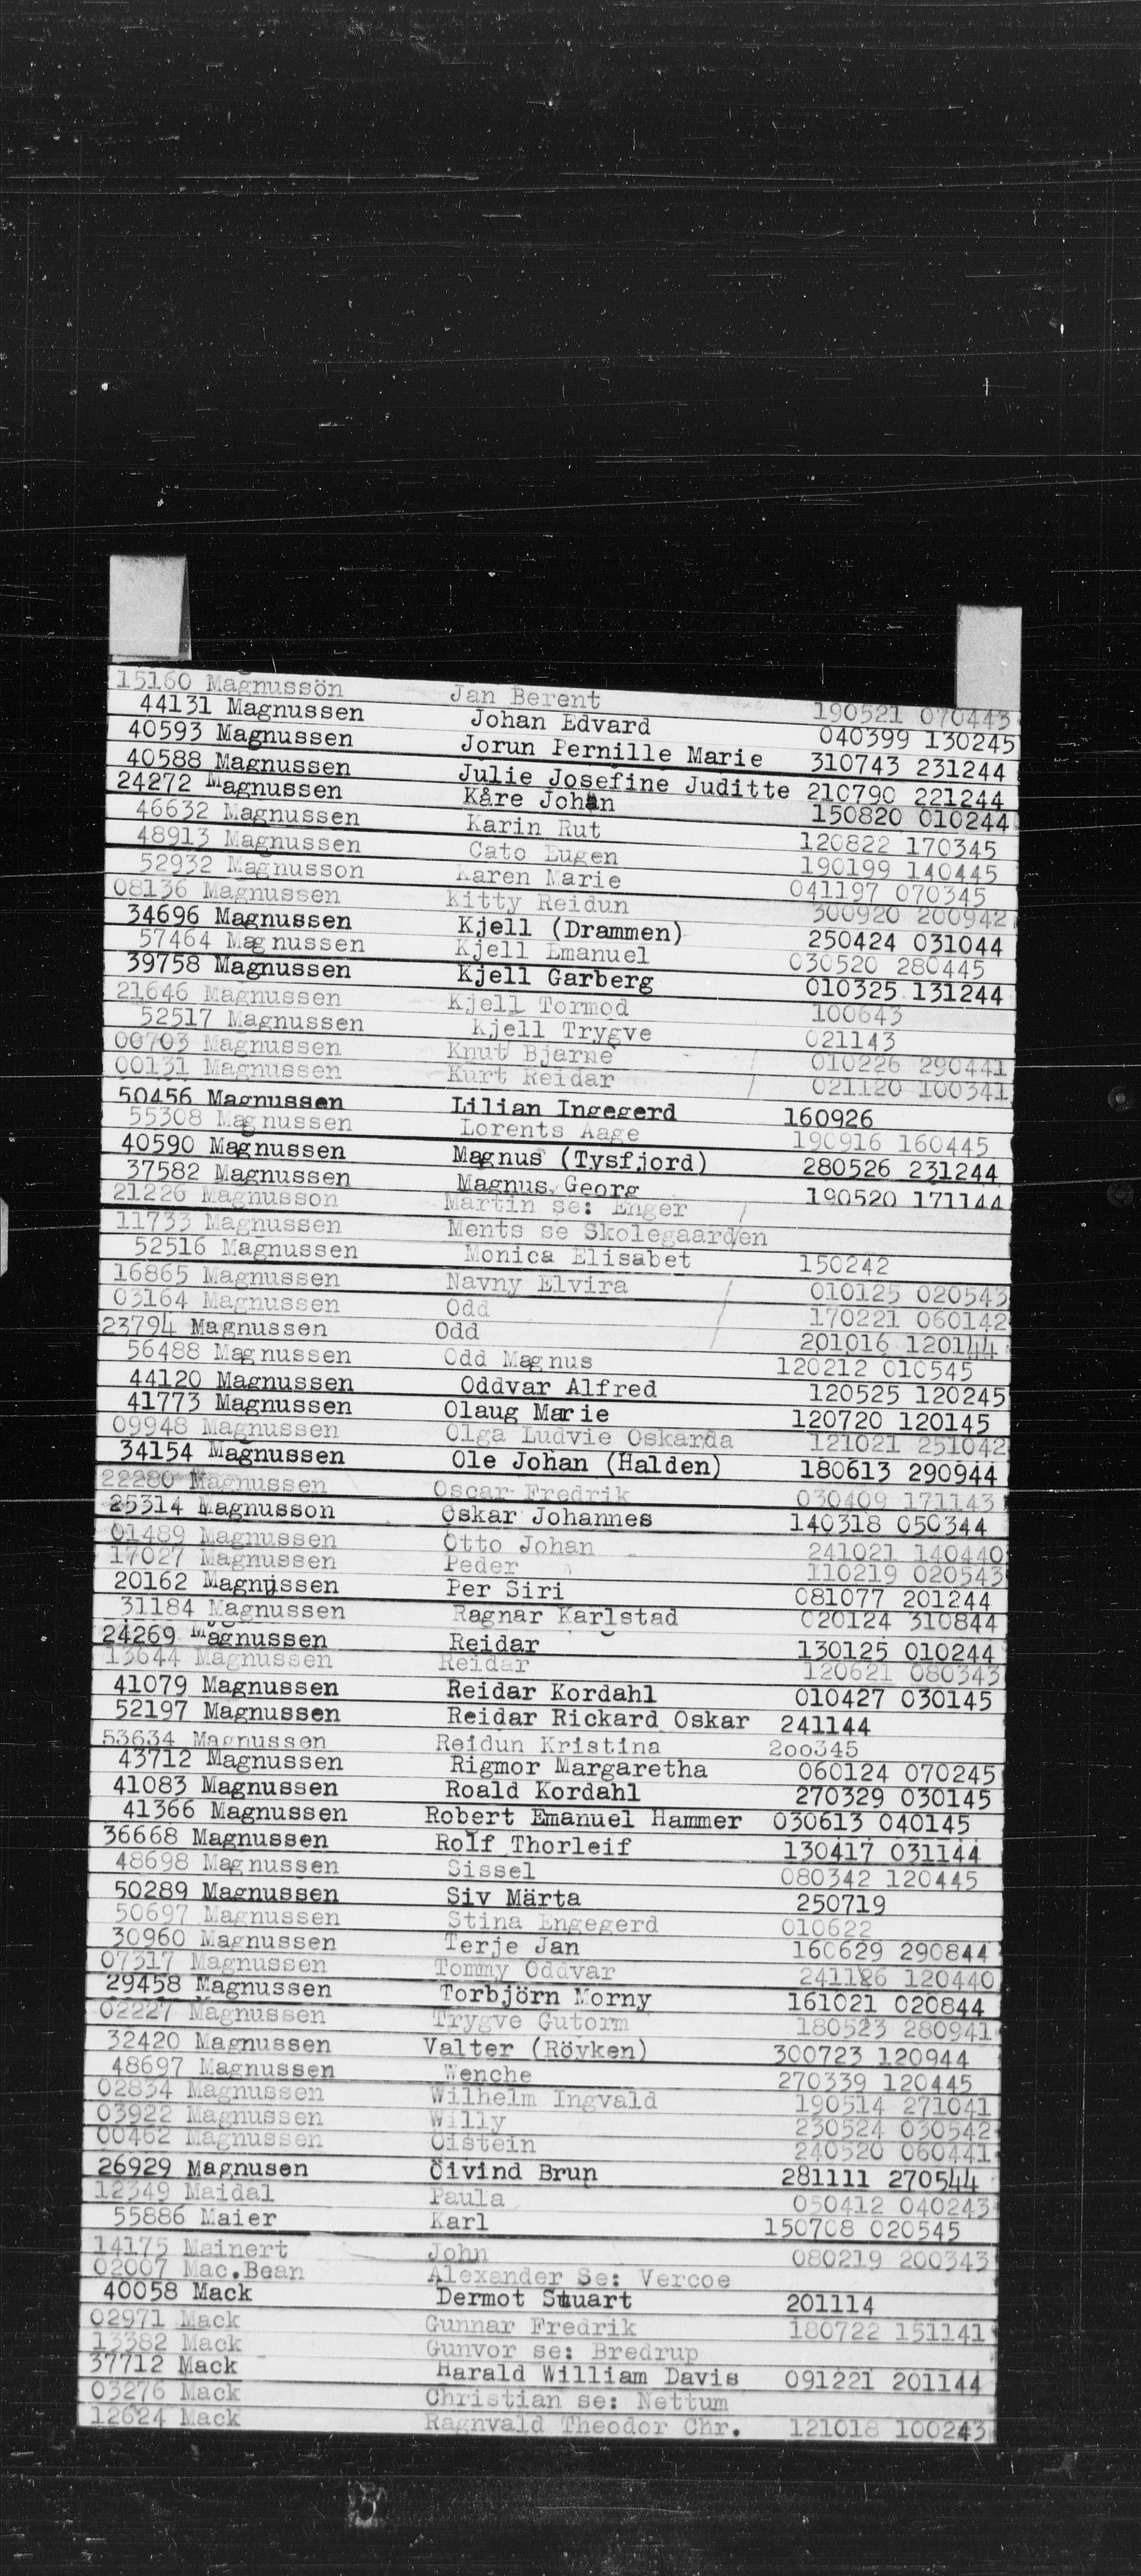 15160 Magnussön Jan Berent 190521 070443
44131 Magnussen Johan Edvard 040399 130245
40593 Magnussen Jorun Pernille Marie 310743 231244
40588 Magnussen Julie Josefine Juditte 210790 221244
24272 Magnussen Kåre Johan 150820 010244
46632 Magnussen Karin Rut 120822 170345
48913 Magnussen Cato Eugen 190199 140445
52932 Magnusson Karen Marie 041197 070345
08136 Magnussen Kitty Reidun 300920 200942
34696 Magnussen Kjell (Drammen) 250424 031044
57464 Magnussen Kjell Emanuel 030520 280445
39758 Magnussen Kjell Garberg 010325 131244
21646 Magnussen Kjell Tormod 100643
52517 Magnussen Kjell Trygve 021143
00703 Magnussen Knut Bjarne 010226 290441
00131 Magnussen Kurt Reidar 021120 100341
50456 Magnussen Lilian Ingegerd 160926
55308 Magnussen Lorents Aage 190916 160445
40590 Magnussen Magnus (Tysfjord) 280526 231244
37582 Magnussen Magnus Georg 190520 171144
21226 Magnusson Martin se: Enger
11733 Magnussen Ments se Skolegaarden
52516 Magnussen Monica Elisabet 150242
16865 Magnussen Navny Elvira 010125 020543
03164 Magnussen Odd 170221 060142
23794 Magnussen Odd 201016 120144
56488 Magnussen Odd Magnus 120212 010545
44120 Magnussen Oddvar Alfred 120525 120245
41773 Magnussen Olaug Marie 120720 120145
09948 Magnussen Olga Ludvie Oskarda 121021 251042
34154 Magnussen Ole Johan (Halden) 180613 290944
22280 Magnussen Oscar Fredrik 030409 171143
25314 Magnusson Oskar Johannes 140318 050344
01489 Magnussen Otto Johan 241021 140440
17027 Magnussen Peder 110219 020543
20162 Magnussen Per Siri 081077 201244
31184 Magnussen Ragnar Karlstad 020124 310844
24269 Magnussen Reidar 130125 010244
13644 Magnussen Reidar 120621 080343
41079 Magnussen Reidar Kordahl 010427 030145
52197 Magnussen Reidar Rickard Oskar 241144
53634 Magnussen Reidun Kristina 200345
43712 Magnussen Rigmor Margaretha 060124 070245
41083 Magnussen Roald Kordahl 270329 030145
41366 Magnussen Robert Emanuel Hammer 030613 040145
36668 Magnussen Rolf Thorleif 130417 031144
48698 Magnussen Sissel 080342 120445
50289 Magnussen Siv Märta 250719
50697 Magnussen Stina Engegerd 010622
30960 Magnussen Terje Jan 160629 290844
07317 Magnussen Tommy Oddvar 241126 120440
29458 Magnussen Torbjörn Morny 161021 020844
02227 Magnussen Trygve Gutorm 180523 280941
32420 Magnussen Valter (Röyken) 300723 120944
48697 Magnussen Wenche 270339 120445
02834 Magnussen Wilhelm Ingvald 190514 271041
03922 Magnussen Willy 230524 030542
00462 Magnussen Öistein 240520 060441
26929 Magnusen Öivind Brun 281111 270544
12349 Maidal Paula 050412 040243
55886 Maier Karl 150708 020545
14175 Mainert John 080219 200343
02007 Mac.Bean Alexander Se: Vercoe
40058 Mack Dermot Stuart 201114
02971 Mack Gunnar Fredrik 180722 151141
13382 Mack Gunvor se: Bredrup
37712 Mack Harald William Davis 091221 201144
03276 Mack Christian se: Nettum
12624 Mack Ragnvald Theodor Chr. 121018 100243